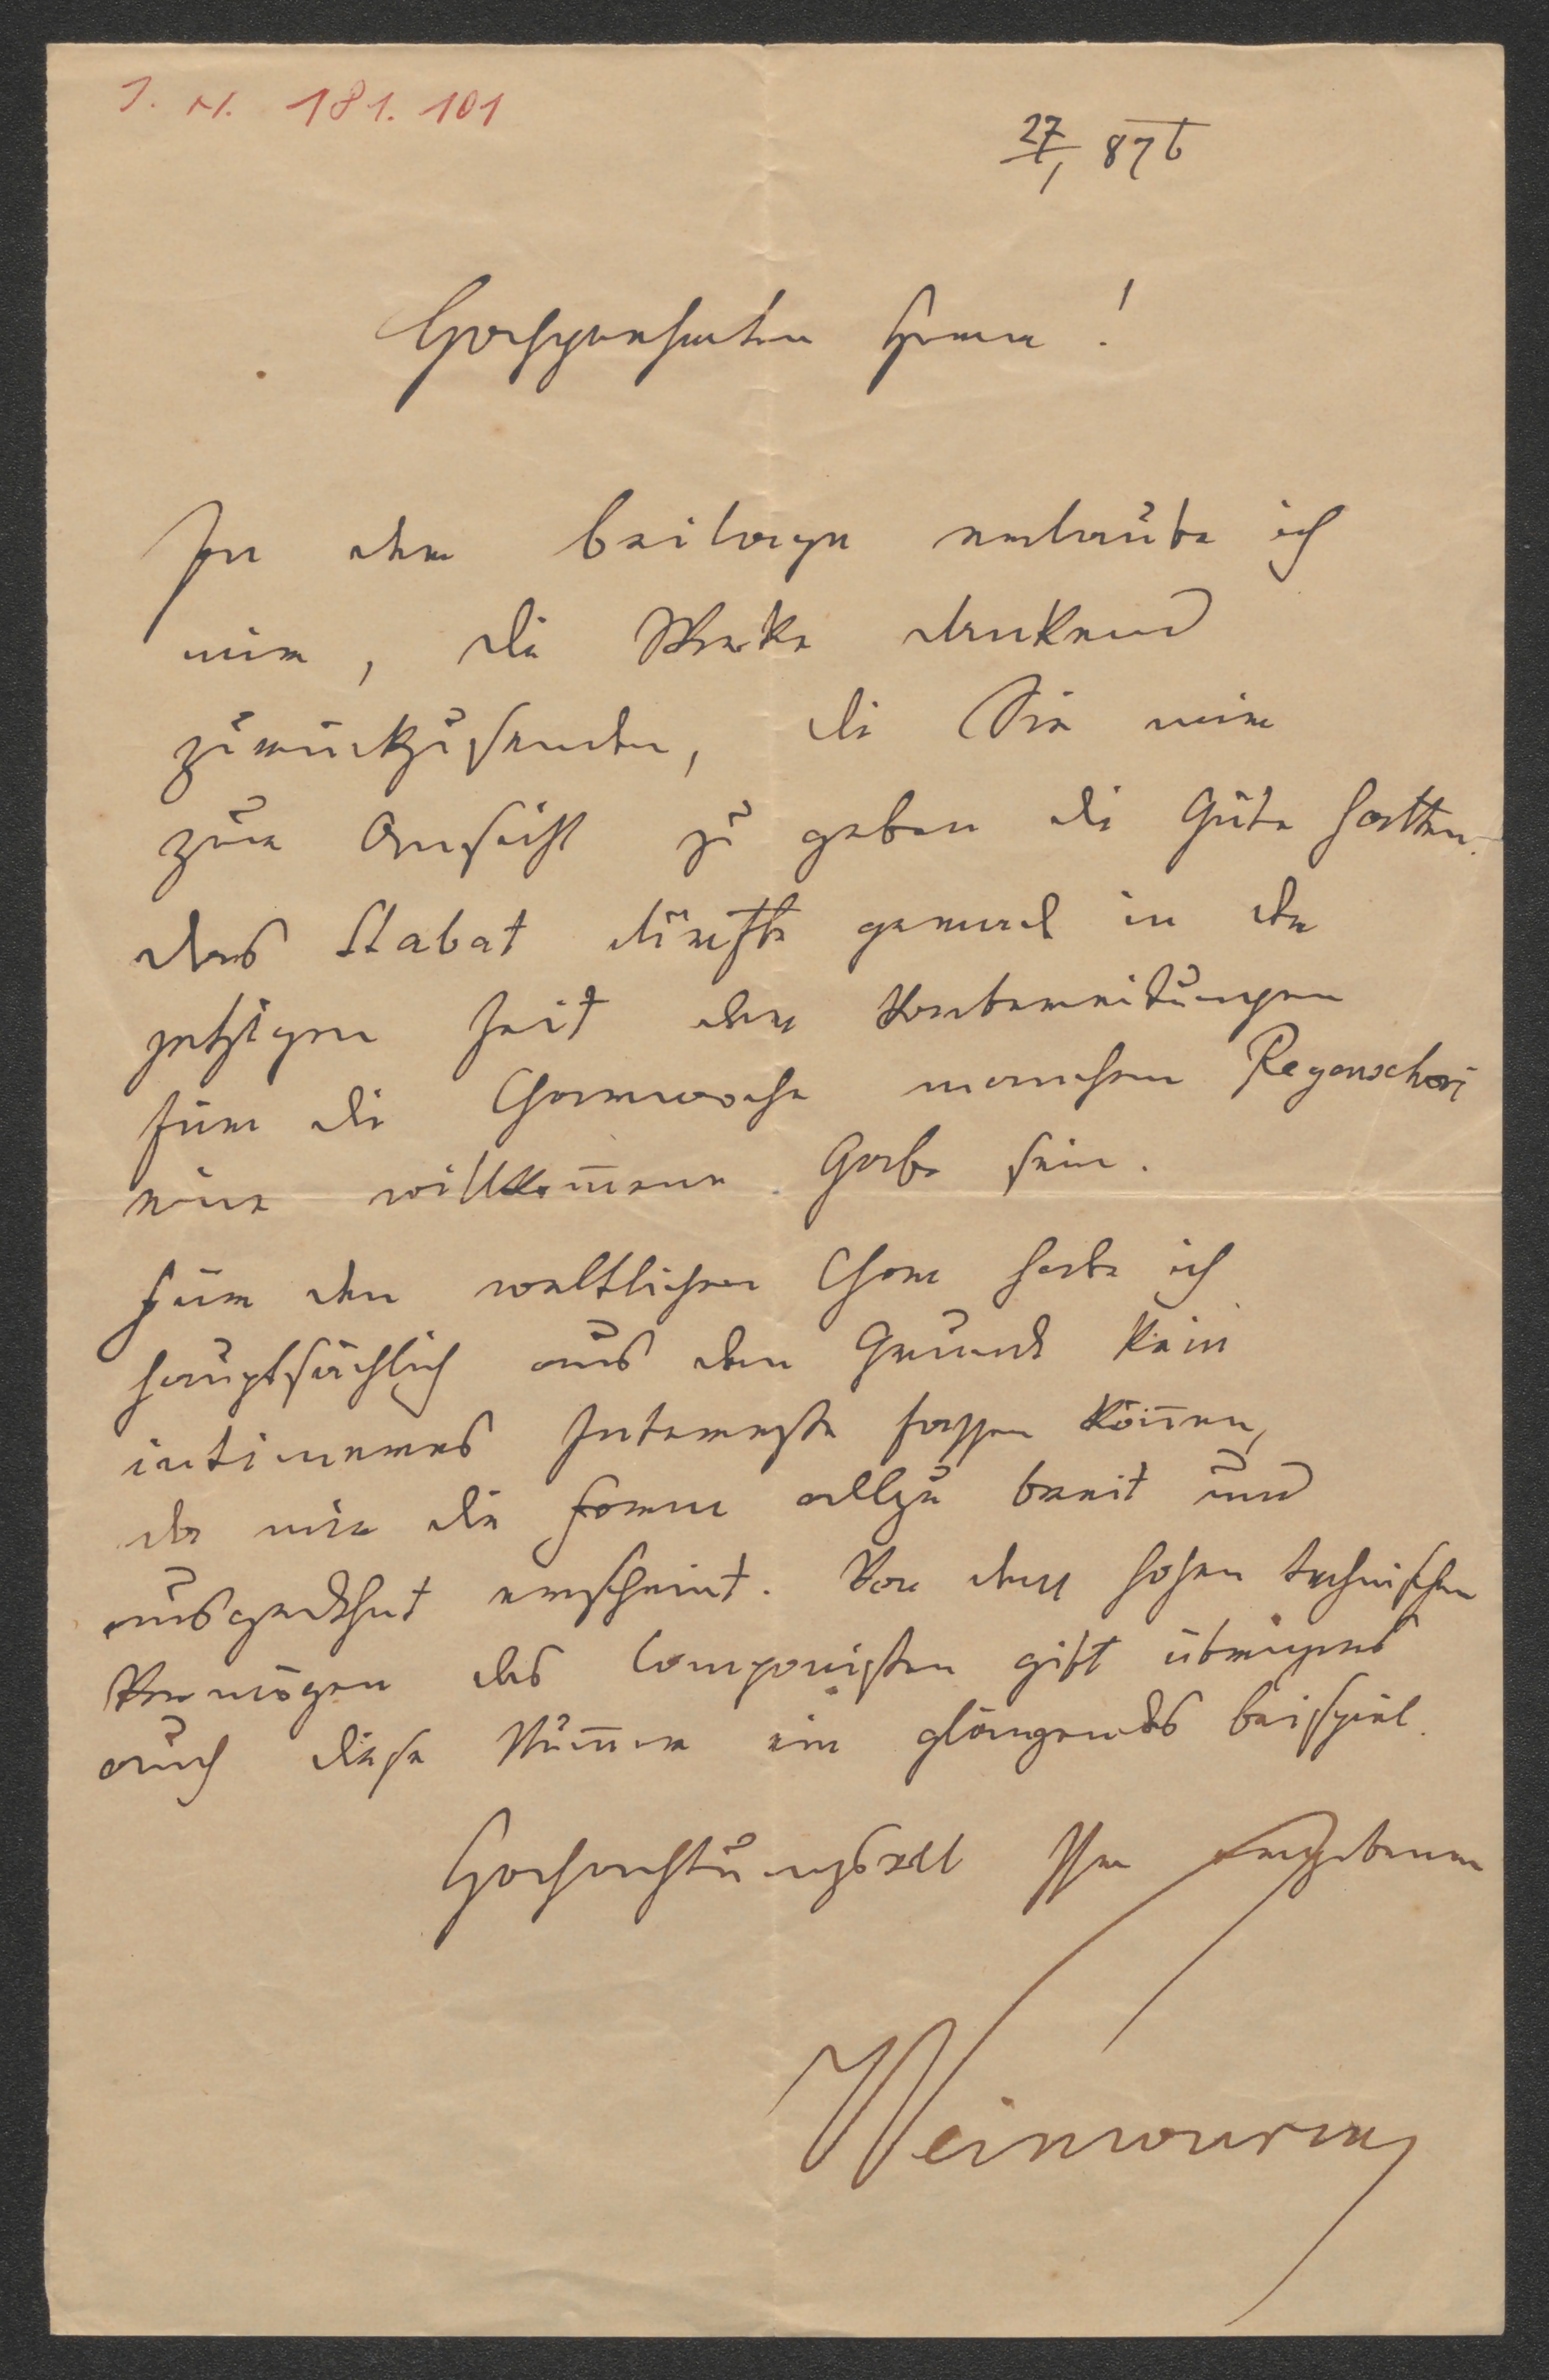 I. N. 181.101
27/1 876
Hochgeehrter Herr!
In der Beilage erlaube ich
mir, die Werke dankend
zurückzusenden, die Sie mir
zur Ansicht zu geben die Güte hatten.
Das Stabat dürfte gerad in der
jetzigen Zeit der Vorbereitungen
für die Charwoche manchem Regenschori
eine willkom̅ene Gabe sein.
Für den weltlichen Chor habe ich
hauptsächlich aus dem Grunde kein
intimeres Interesse fassen kön̅en,
da mir die Form allzu breit und
ausgedehnt erscheint. Von dem hohen technischen
Vermögen des Componisten gibt übrigens
auch diese Num̅er ein glänzendes Beispiel.
Hochachtungsvoll Ihr ergebener
Weinwurm